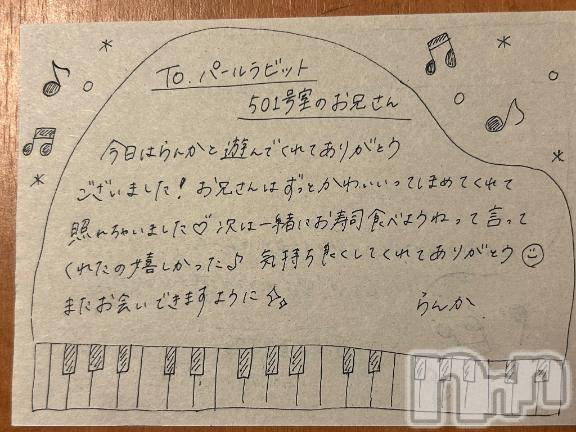 To. パールラビット
501号室のお兄さん
今日はらんかと遊んでくれてありがとう
ございました! お兄さんはずっとかわいいってしまめてくれて
照れちゃいました♡ 次は一緒にお寿司食べようねって言って
くれたの嬉しかった♪ 気持ち良くしてくれてありがとう☺
またお会いできますように☆
らんか